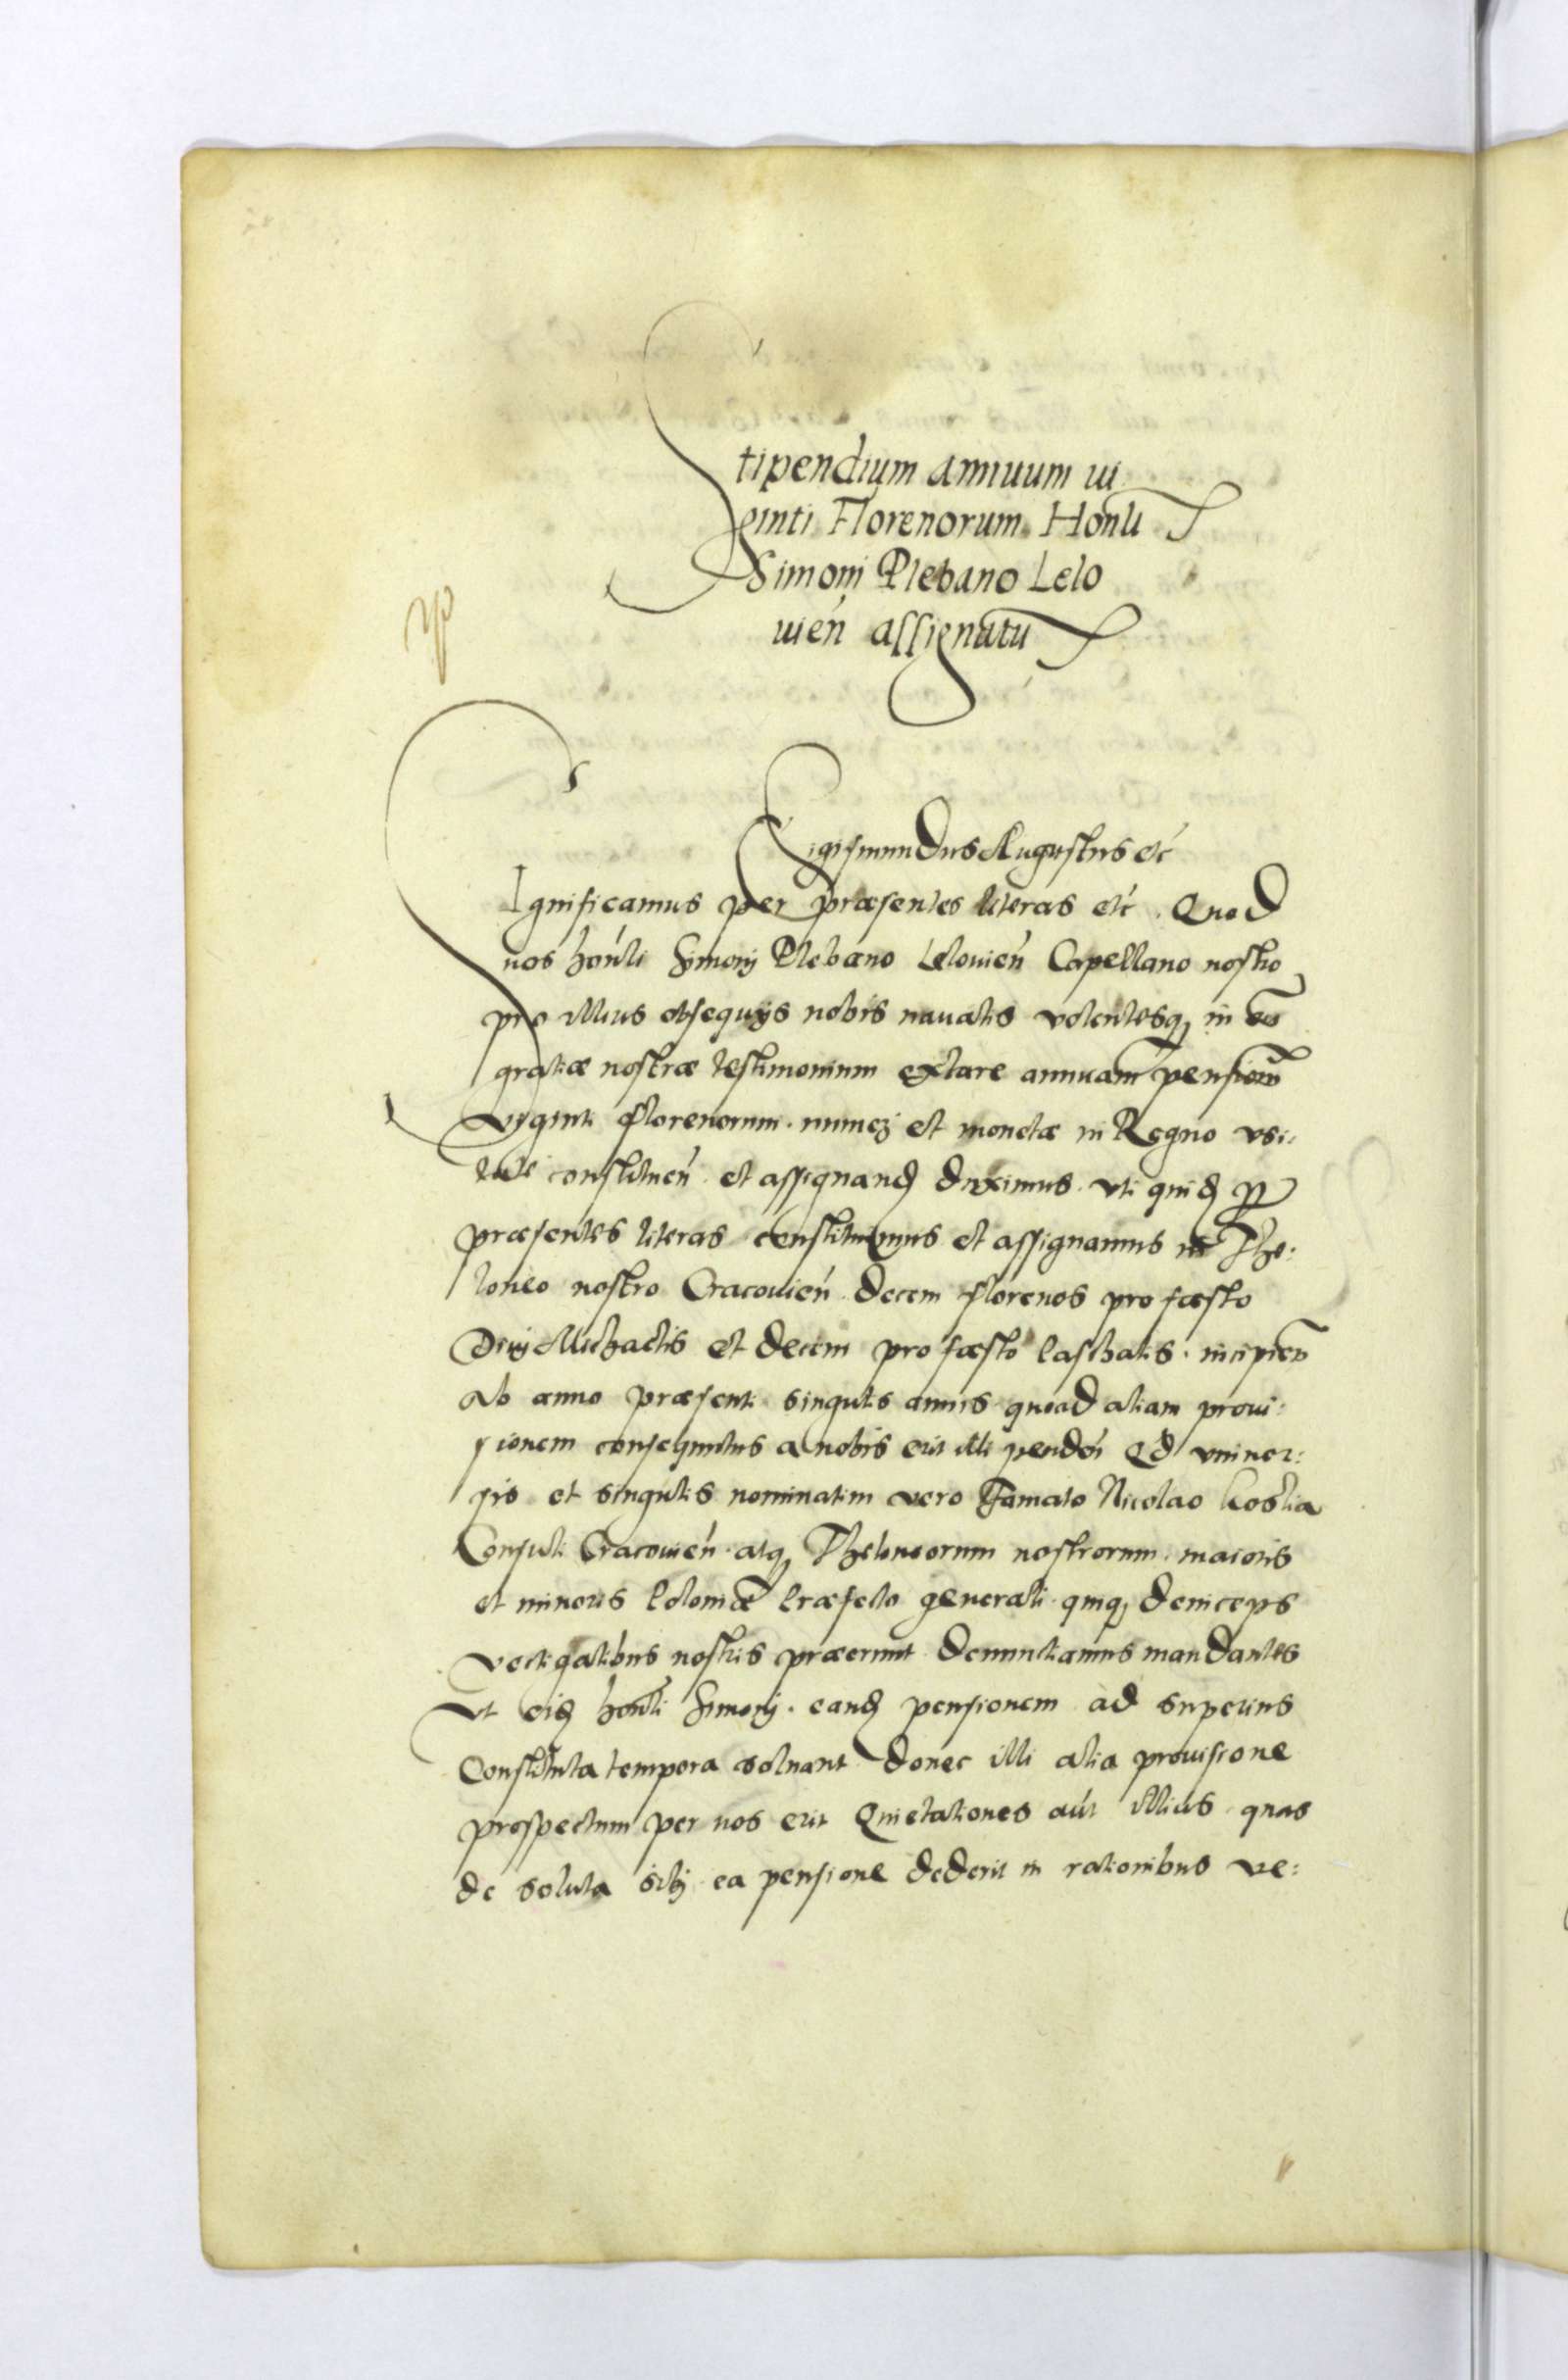 Stipendium annuum ui
ginti Florenorum Honli
Simoni Plebano Lelo
uien assignatu
Sigismundus Augustus etc
Significamus per præsentes literas etc. Quod
nos honli Simonj Plebano Lelouien Capellano nostro
pro illius obsequijs nobis nauatis volentesq in eo
gratiæ nostræ testimonium extare annuam pensionem
viginti florenorum. numeri et monetæ in Regno vsi:
tate constituen et assignand duximus. vti quid per
præsentes literas constituimus et assignamus in The:
loneo nostro Cracouien decem florenos pro fæsto
Diuj Michaelis et decem pro fæsto Paschatis. incipien
Ab anno præsenti singulis annis quoad aliam proui:
sionem consequutus a nobis erit illi penden Qd vniuer:
sis et singulis nominatim vero Famato Nicolao
Consuli Cracouien. atq Theloneorum nostrorum. maioris
et minoris Poloniæ Præfecto generali quiq deinceps
vectigalibus nostris præerunt denunctiamus mandantes
Vt eid honli Simonj. eand pensionem ad superius
Constituta tempora soluant donec illi alia prouisione
prospectum per nos erit Quietationes aut illius quas
de soluta sibj ea pensione dederit in rationibus ve: